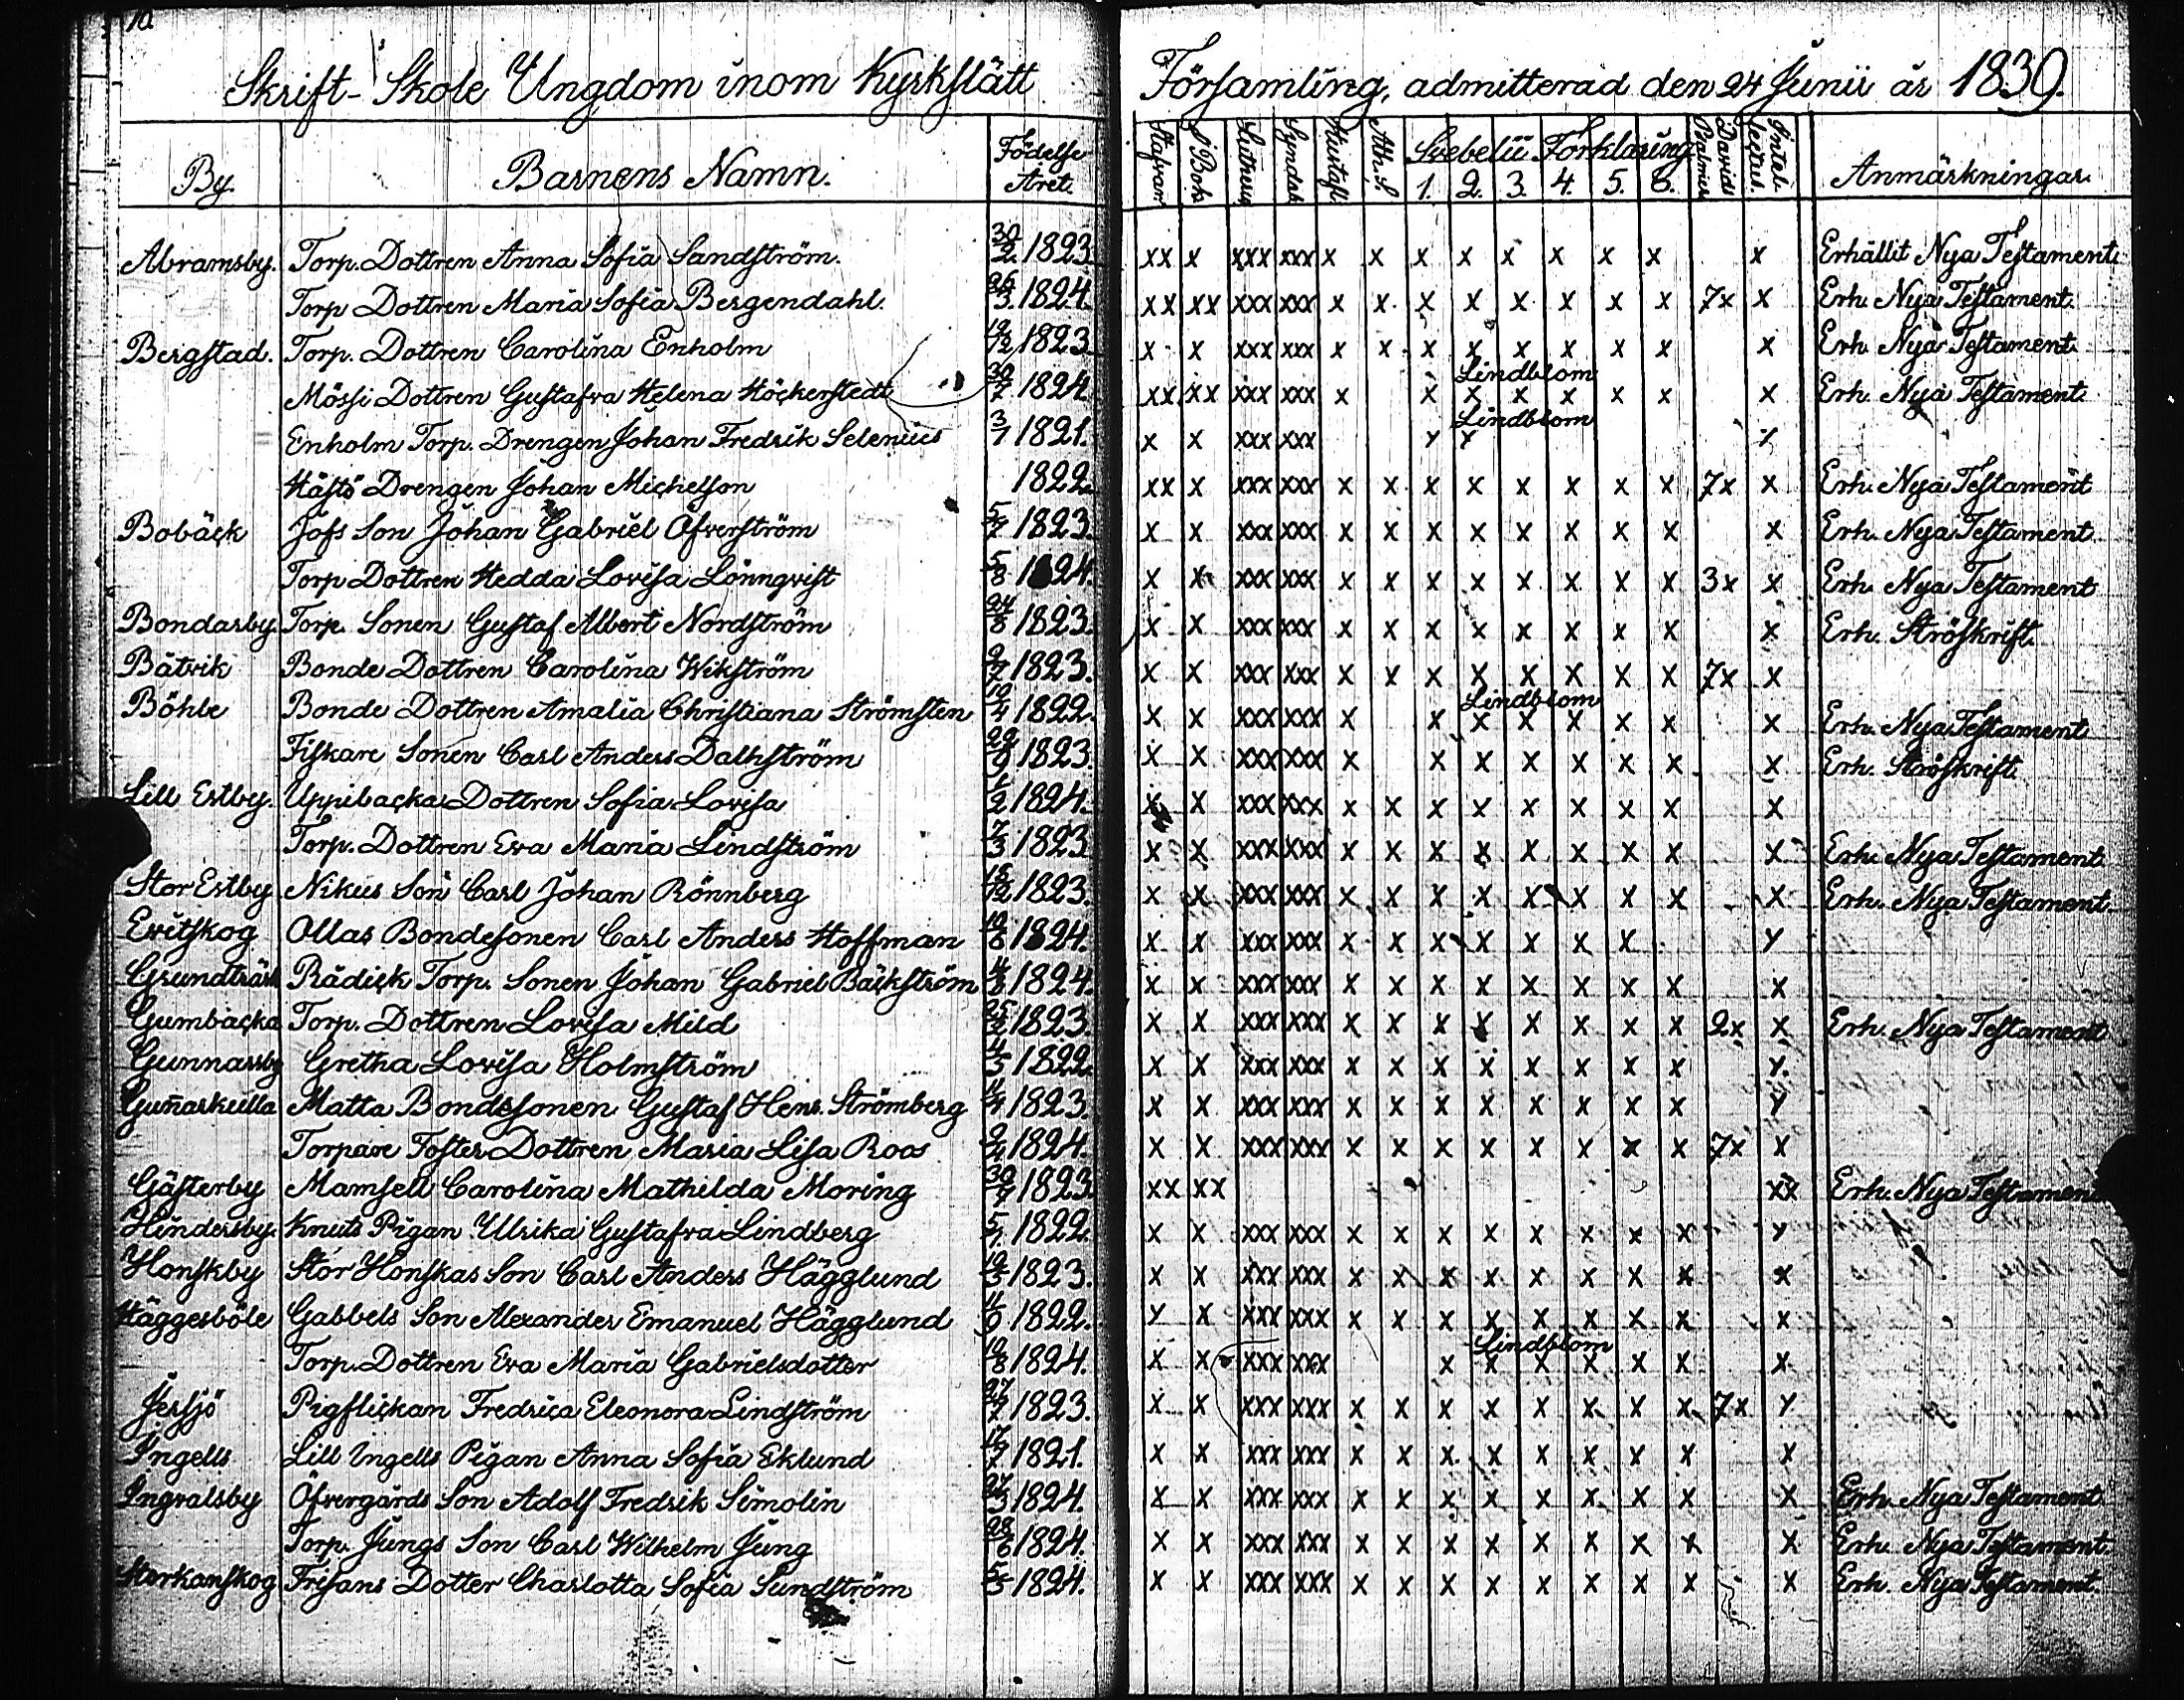 Skrift-Skole Ungdom inom Kyrkslätt Församling, admitterad den 24 Junii år 1839.
By. Barnens Namn. Födelse Året. Stafvar. Luthers Hustafl. Ath. S Svebelii Förklaring 1. 2. 3. 4. 5. 6. Davids Psalmer Anmärkningar.
Abramsby. Torp. Dottren Anna Sofia Sandström. 30/2 1823 xx x xxx xxx x x x x x x x x x Erhållit Nya Testament
Torp Dottren Maria Sofia Bergendahl. 26/3 1824. xx xx xxx xxx x x x x x x x x 7x x Erh. Nya Testament.
Bergstad. Torp. Dottren Carolina Enholm 19/12 1823 x x xxx xxx x x x x x x x x x Erh. Nya Testament
Mössi Dottren Gustafva Helena Höckerstedt 30/7 1824. xx xx xxx xxx x x Lindblom x x x x x x Erh. Nya Testament.
Enholm Torp. Drengen Johan Fredrik Selenius 3/7 1821. x x xxx xxx x x Lindblom x
Hästö Drengen Johan Michelson 1822. xx x xxx xxx x x x x x x x x 7x x Erh. Nya Testament
Bobäck Jofs Son Johan Gabriel Öfverström 5/7 1823. x x xxx xxx x x x x x x x x x Erh. Nya Testament
Torp Dottren Hedda Lovisa Lönnqvist 5/8 1824. x x xxx xxx x x x x x x x x 3x x Erh. Nya Testament
Bondarby Torp. Sonen Gustaf Albert Nordström 24/8 1823. x x xxx xxx x x x x x x x x x Erh. Ströskrift.
Båtvik Bonde Dottren Carolina Wikström 1823. x x xxx xxx x x x x x x x x 7x x
Böhle Bonde Dottren Amalia Christiana Strömsten 19/4 1822. x x xxx xxx x x Lindblom x x x x x x Erh. Nya Testament
Fiskare Sonen Carl Anders Dalhström 22/9 1823 x x xxx xxx x x x x x x x x Erh. Ströskrift.
Lill Estby. Uppibacka Dottren Sofia Lovisa 1824. x x xxx xxx x x x x x x x x x
Torp. Dottren Eva Maria Lindström 7/3 1823 x x xxx xxx x x x x x x x x x Erh. Nya Testament
Stor Estby Nikus Son Carl Johan Rönnberg 18/12 1823. x x xxx xxx x x x x x x x x x Erh. Nya Testament
Evitskog Ollas Bondesonen Carl Anders Hoffman 10/6 1824. x x xxx xxx x x x x x x x x
Grundträsk Rådick Torp. Sonen Johan Gabriel Bäckström 1824. x x xxx xxx x x x x x x x x x
Gumbacka Torp. Dottren Lovisa Mild 1823. x x xxx xxx x x x x x x x x 2x x Erh. Nya Testament
Gunnarsby Gretha Lovisa Holmström 1822. x x xxx xxx x x x x x x x x x
Guñarkulla Matta Bondesonen Gustaf Henr. Strömberg 1823. x x xxx xxx x x x x x x x x x
Torpare Foster Dottren Maria Lisa Roos 1824. x x xxx xxx x x x x x x x x 7x x
Gästerby Mamsell Carolina Mathilda Moring 30/7 1823. xx xx xx Erh. Nya Testament
Hindersby. Knuts Pigan Ulrika Gustafva Lindberg 5/7 1822. x x xxx xxx x x x x x x x x x
Honskby Stor Honskas Son Carl Anders Hägglund 19/3 1823. x x xxx xxx x x x x x x x x x
Häggesböle Gabbels Son Alexander Emanuel Hägglund 1822. x x xxx xxx x x x x x x x x x
Torp. Dottren Eva Maria Gabrielsdotter 19/8 1824. x x xxx xxx x Lindblom x x x x x x
Jersjö Pigflickan Fredrica Eleonora Lindström 27/7 1823. x x xxx xxx x x x x x x x x 7x x
Ingells Lill Ingells Pigan Anna Sofia Eklund 17/7 1821. x x xxx xxx x x x x x x x x x
Ingvalsby Öfvergårds Son Adolf Fredrik Simolin 27/3 1824. x x xxx xxx x x x x x x x x x Erh. Nya Testament.
Torp. Jungs Son Carl Wilhelm Jung 28/6 1824. x x xxx xxx x x x x x x x x x Erh. Nya Testament.
Storkanskog Frisans Dotter Charlotta Sofia Sundström 5/5 1824. x x xxx xxx x x x x x x x x x Erh. Nya Testament.